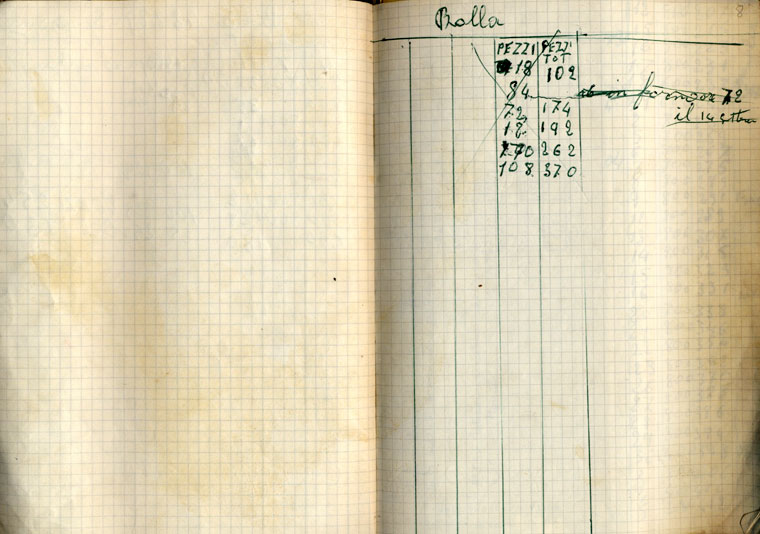 8
Bolla
PEZZI PEZZI
TOT
18 102
84
in fornace 72
72 174
il 14
18 192
70 262
108 370